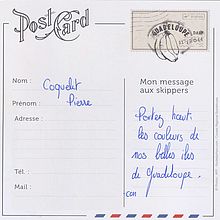 Post Card
GUADELOUPE
Nom :
Coquelet
Prénom :
Pierre
Adresse :
Tél. :
Mail :
Mon message
aux skippers
Portez haut
les couleurs de
nos belles îles
de Guadeloupe.